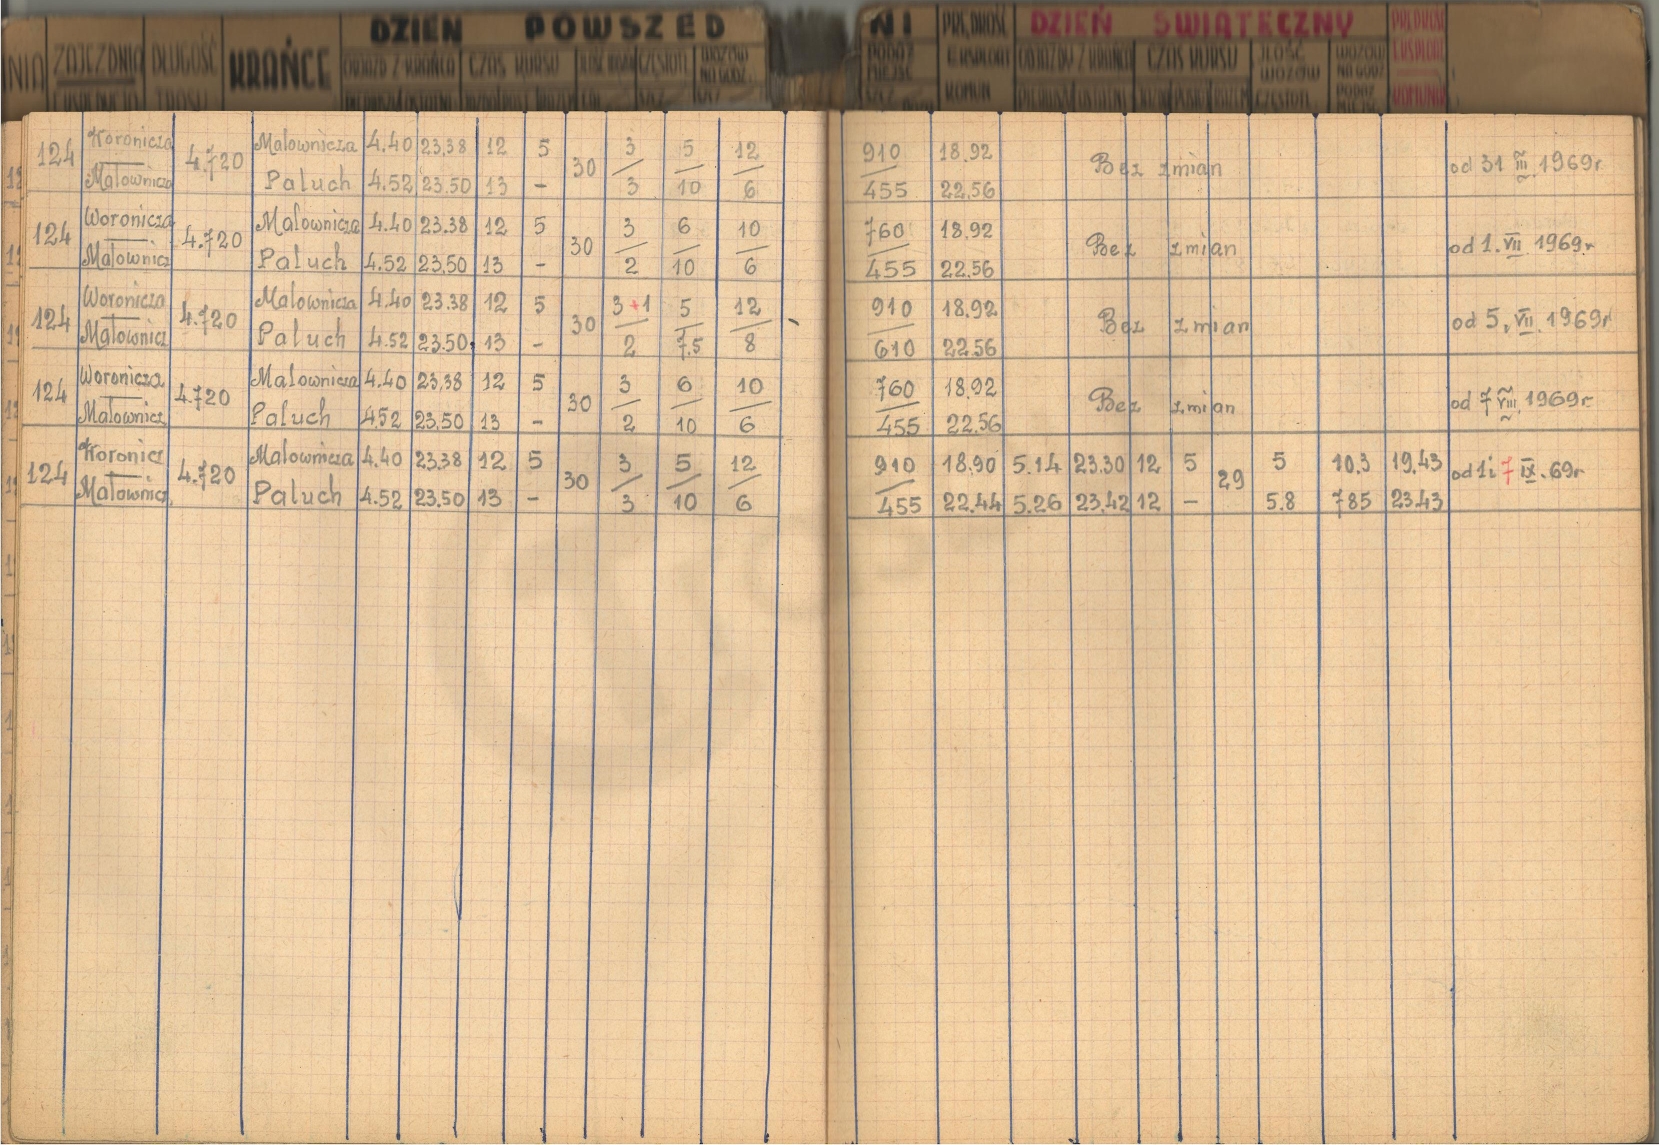 DZIEŃ POWSZED NI DZIEŃ ŚWIĄTECZNY
ZAJEZDNIA DŁUGOŚĆ KRAŃCE ODJAZD Z KRAŃCA CZAS KURSU CZĘSTOTL. WOZÓW NA GODZ. PODAŻ MIEJSC PRĘDKOŚĆ EKSPLOAT. KOMUN. CZAS KURSU ILOŚĆ WOZÓW CZĘSTOTL. WOZÓW NA GODZ. PODAŻ PRĘDKOŚĆ
124 Koronicza 4.720 Malownicza 4.40 23.38 12 5 30 3 5 12 910 18.92 Bez zmian od 31 III 1969r.
Malownicz Paluch 4.52 23.50 13 - 3 10 6 455 22.56
124 Woronicza 4.720 Malownicza 4.40 23.38 12 5 30 3 6 10 760 18.92 Bez zmian od 1. VII 1969r
Malownicz Paluch 4.52 23.50 13 - 2 10 6 455 22.56
124 Woronicza 4.720 Malownicza 4.40 23.38 12 5 30 3+1 5 12 910 18.92 Bez zmian od 5. VII. 1969r
Malownicz Paluch 4.52 23.50 13 - 2 7.5 8 610 22.56
124 Woronicza 4.720 Malownicza 4.40 23.38 12 5 30 3 6 10 760 18.92 Bez zmian od 7 VIII 1969r
Malownicz Paluch 4.52 23.50 13 - 2 10 6 455 22.56
124 Koronicz 4.720 Malownicza 4.40 23.38 12 5 30 3 5 12 910 18.90 5.14 23.30 12 5 29 5 10.3 19.43 od 1i 7 IX. 69r
Malownicz. Paluch 4.52 23.50 13 - 3 10 6 455 22.44 5.26 23.42 12 - 5.8 785 23.43